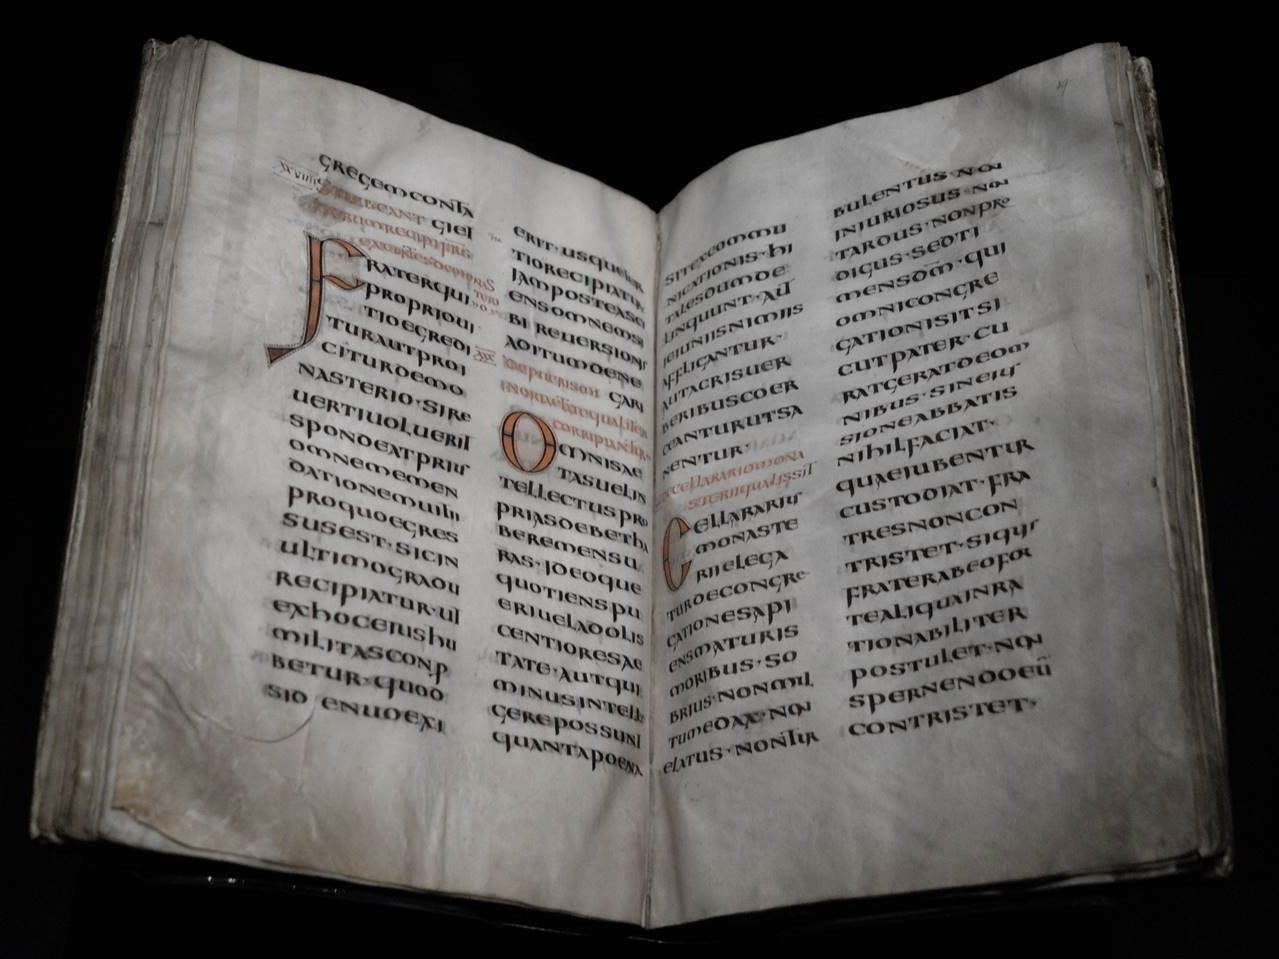 GREGEM CONTA
GIET
FRATER QUI
PROPRIO UI
TIO EGREDI
TUR AUT PROI
CITUR DE MO
NASTERIO · SI RE
UERTI UOLUERIT
SPONDEAT PRIUS
OMNEM EMEN
DATIONEM UITII
PRO QUO EGRES
SUS EST · SIC IN
ULTIMO GRADU
RECIPIATUR · UT
EX HOC EIUS HU
MILITAS CONP
BETUR · QUOD
SI DENUO EXI
ERIT · USQUE TER
TIO RECIPIATUR
IAM POSTEA SCI
ENS OMNEM SI
BI REUERSIONIS
ADITUM DENE
GARI
OMNIS AE
TAS UEL IN
TELLECTUS PRO
PRIAS DEBET HA
BERE MENSU
RAS · IDEOQUE
QUOTIENS PU
ERI UEL ADOLIS
CENTIORES AE
TATE · AUT QUI
MINUS INTELLI
GERE POSSUNT
QUANTA POENA
SIT EXCOMMU
NICATIONIS · HI
TALES DUM DE
LINQUUNT · AUT
IEIUNIIS NIMIIS
AFFLIGANTUR ·
AUT ACRIS UER
BERIBUS COER
CEANTUR UT SA
NENTUR ·
DE CELLARARIO MONA
STERII QUALIS SIT
CELLARARIUS
MONASTE
RII ELEGA
TUR DE CONGRE
GATIONE SAPI
ENS MATURIS
MORIBUS · SO
BRIUS · NON MUL
TUM EDAX · NON
ELATUS · NON TUR
BULENTUS · NON
INIURIOSUS · NON
TARDUS · NON PRO
DIGUS · SED TI
MENS DM̄ · QUI
OMNI CONGRE
GATIONI SIT SI
CUT PATER · CU
RAM GERAT DE OM
NIBUS · SINE IUS
SIONE ABBATIS
NIHIL FACIAT ·
QUAE IUBENTUR
CUSTODIAT · FRA
TRES NON CON
TRISTET · SI QUIS
FRATER AB EO FOR
TE ALIQUA INRA
TIONABILITER
POSTULET · NON
SPERNENDO EŪ
CONTRISTET ·